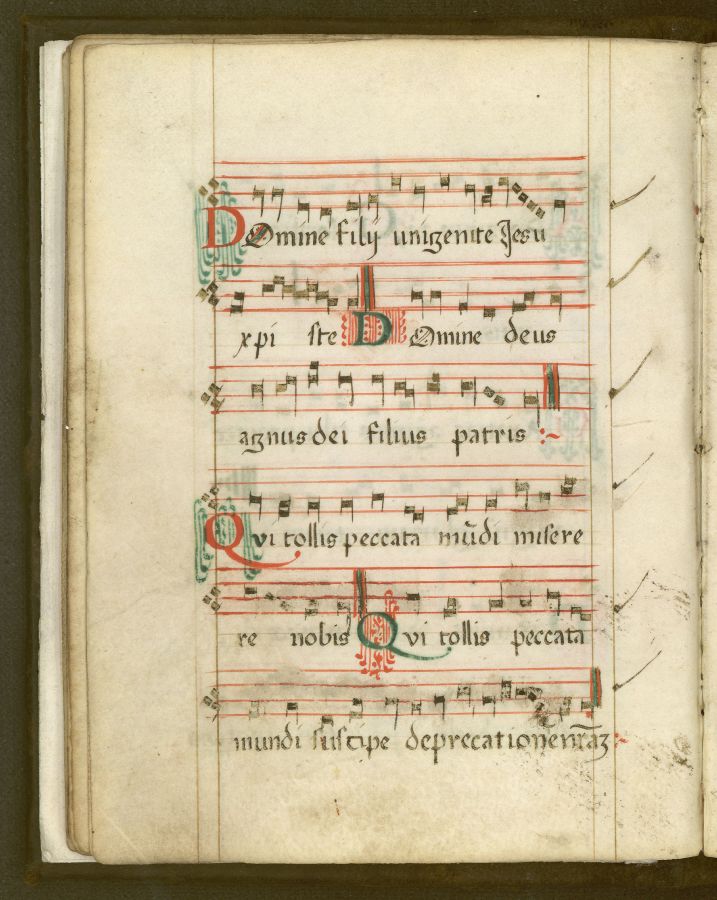 DOmine filij unigenite Jesu
xpi ste DOmine deus
agnus dei filius patris :~
Qvi tollis peccata mũdi misere
re nobis Qvi tollis peccata
mundi suscipe deprecationẽ nr̃aʒ :~